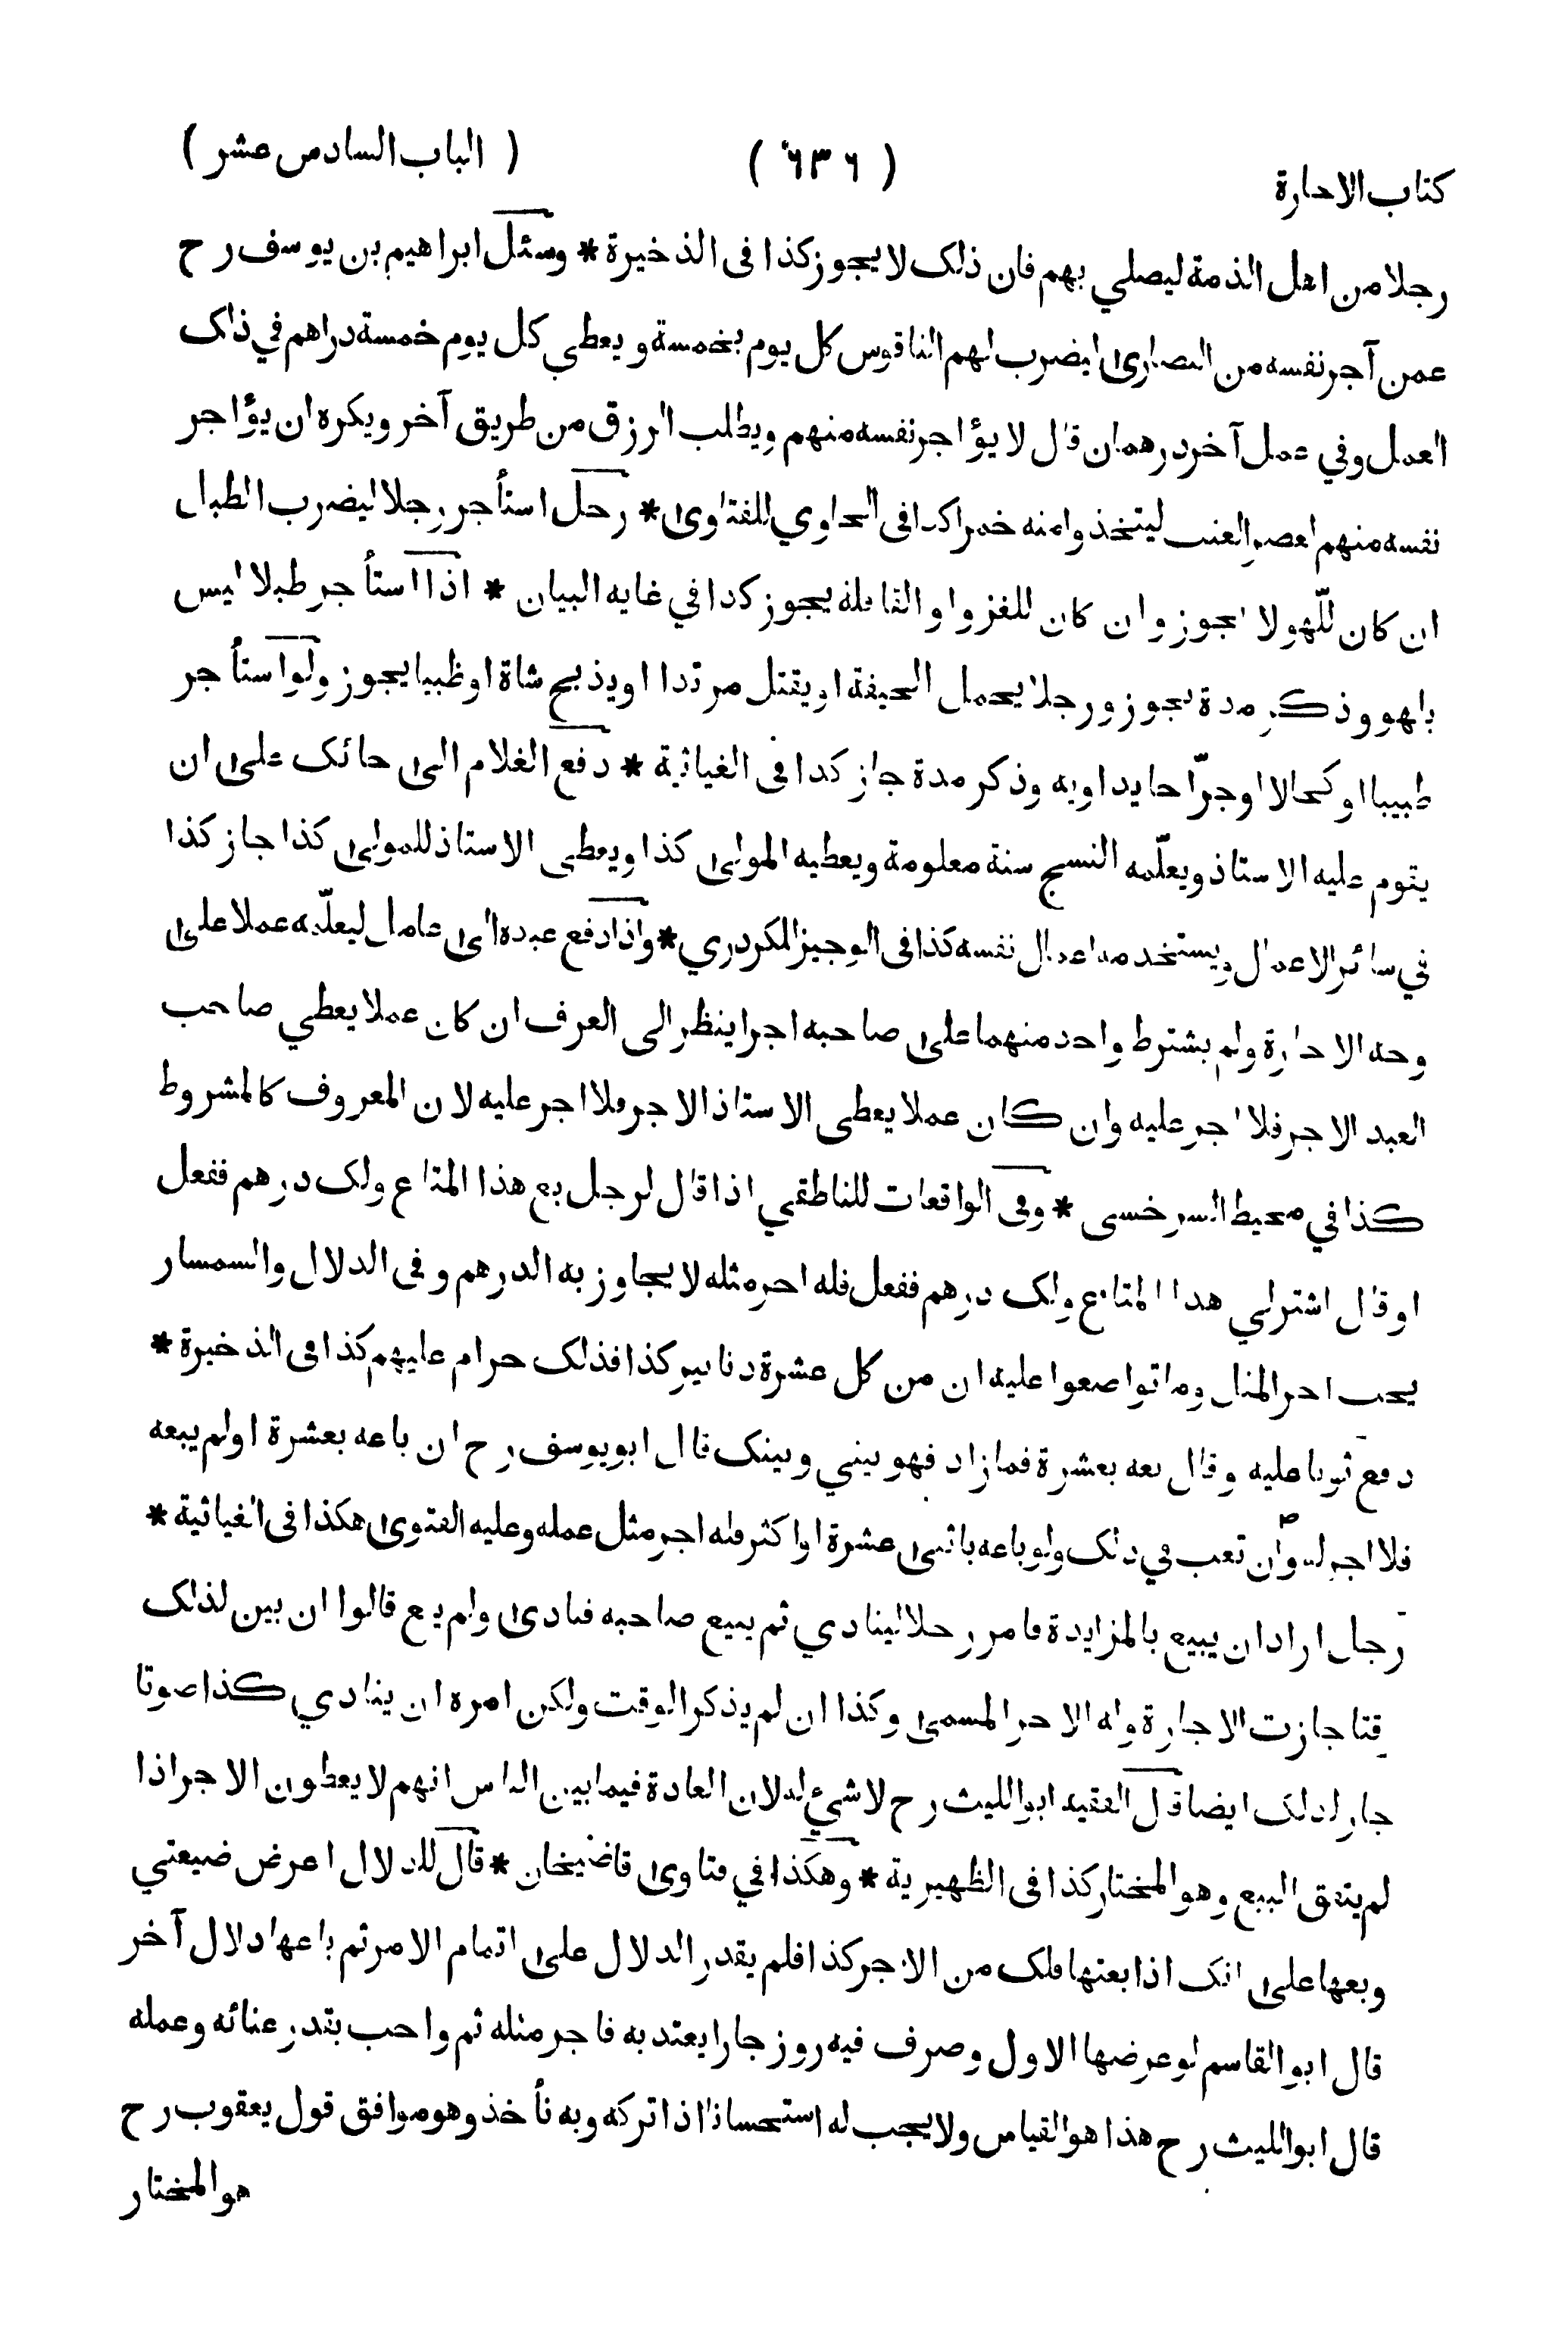 كتاب الاجارة ( ٦٣٦ ) ( الباب السادس عشر )
رجلا من اهل الذمة ليصلي بهم فان ذلك لا يجوز كذا فى الذخيرة * وسئل ابراهيم بن يوسف رح
عمن آجر نفسه من النصارى ليضرب لهم الناقوس كل يوم بخمسة ويعطى كل يوم خمسة دراهم في ذلك
العمل وفي عمل آخر درهمان قال لا يؤاجر نفسه منهم ويطلب الرزق من طريق آخر ويكره ان يؤاجر
نفسه منهم لعصر العنب ليتخذوا منه خمرا كذا فى الحاوي للفتاوى * رجل استأجر رجلا ليضرب الطبل
ان كان للّهو لا يجوز وان كان للغزو او القافلة يجوز كذا في غاية البيان * اذا استأجر طبلا ليس
بلهو وذكر مدة يجوز ورجلا يحمل الجيفة او يقتل مرتدا او يذبح شاة او ظبيا يجوز ولو استأجر
طبيبا او كحالا او جرّاحا يداويه وذكر مدة جاز كذا فى الغياثية * دفع الغلام الى حائك على ان
يقوم عليه الاستاذ ويعلّمه النسج سنة معلومة ويعطيه المولى كذا ويعطى الاستاذ للمولى كذا جاز كذا
في سائر الاعمال ويستخدمه اعمال نفسه كذا فى الوجيز للكردري * واذا دفع عبده الى عامل ليعلّمه عملا على
وجه الاجارة ولم يشترط واحد منهما على صاحبه اجرا ينظر الى العرف ان كان عملا يعطي صاحب
العبد الاجر فلا اجر عليه وان كان عملا يعطى الاستاذ الاجر فلا اجر عليه لان المعروف كالمشروط
كذا في محيط السرخسى * وفى الواقعات للناطقي اذا قال لرجل بع هذا المتاع ولك درهم ففعل
او قال اشتر لي هذا المتاع ولك درهم ففعل فله اجر مثله لا يجاوز به الدرهم وفى الدلال والسمسار
يجب اجر المثل وما تواضعوا عليه ان من كل عشرة دنانير كذا فذلك حرام عليهم كذا فى الذخيرة *
دفع ثوبا عليه وقال بعه بعشرة فما زاد فهو بيني وبينك قال ابو يوسف رح ان باعه بعشرة او لم يبعه
فلا اجر له وان تعب في ذلك ولو باعه باثنى عشرة او اكثر فله اجر مثل عمله وعليه الفتوى هكذا فى الغياثية *
رجل اراد ان يبيع بالمزايدة فامر رجلا لينادي ثم يبيع صاحبه فنادى ولم يبع قالوا ان بين لذلك
قتا جازت الاجارة وله الاجر المسمى وكذا ان لم يذكر الوقت ولكن امره ان ينادي كذا صوتا
جاز لذلك ايضا قال الفقيه ابو الليث رح لا شئ له لان العادة فيما بين الناس انهم لا يعطون الاجر اذا
لم يتفق البيع وهو المختار كذا فى الظهيرية * وهكذا في فتاوى قاضيخان * قال للدلال اعرض ضيعتي
وبعها على انك اذا بعتها فلك من الاجر كذا فلم يقدر الدلال على اتمام الامر ثم باعها دلال آخر
قال ابو القاسم لو عرضها الاول وصرف فيه روزجارا يعتد به فاجر مثله ثم واجب بقدر عنائه وعمله
قال ابو الليث رح هذا هو القياس ولا يجب له استحسانا اذا تركه وبه نأخذ وهو موافق قول يعقوب رح
هو المختار